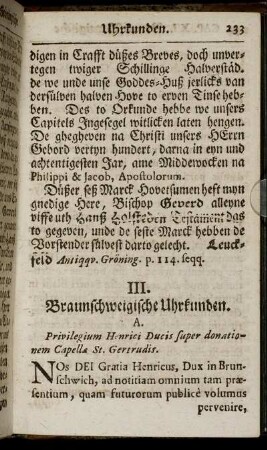 Uhrkunden. 233
digen in Crafft düßes Breves, doch unver-
tegen twiger Schillinge Halverstäd.
de we unde unse Goddes-Huß jerlicks van
dersülven halven Hove to erven Tinse heb-
ben. Des to Orkunde hebbe we unsers
Capitels Ingesegel witlicken laten hengen.
De ghegheven na Christi unsers HErrn
Gebord vertyn hundert, darna in eyn und
achtentigesten Jar, ame Middewocken na
Philippi & Jacob, Apostolorum.
Düßer seß Marck Hovetsumen heft myn
gnedige Here, Bischop Geverd alleyne
viffe uth Hanß Testament das
to gegeven, unde de seste Marck hebben de
Vorstender sülvest darto gelecht. Leuck-
feld Antiqqv. Gröning. p. 114. seqq.
III.
Braunschweigische Uhrkunden.
A.
Privilegium Henrici Ducis super donatio-
nem Capellæ St. Gertrudis.
NOs DEI Gratia Henricus, Dux in Brun-
schwich, ad notitiam omnium tam præ-
sentium, quam futurorum publicè volumus
pervenire,